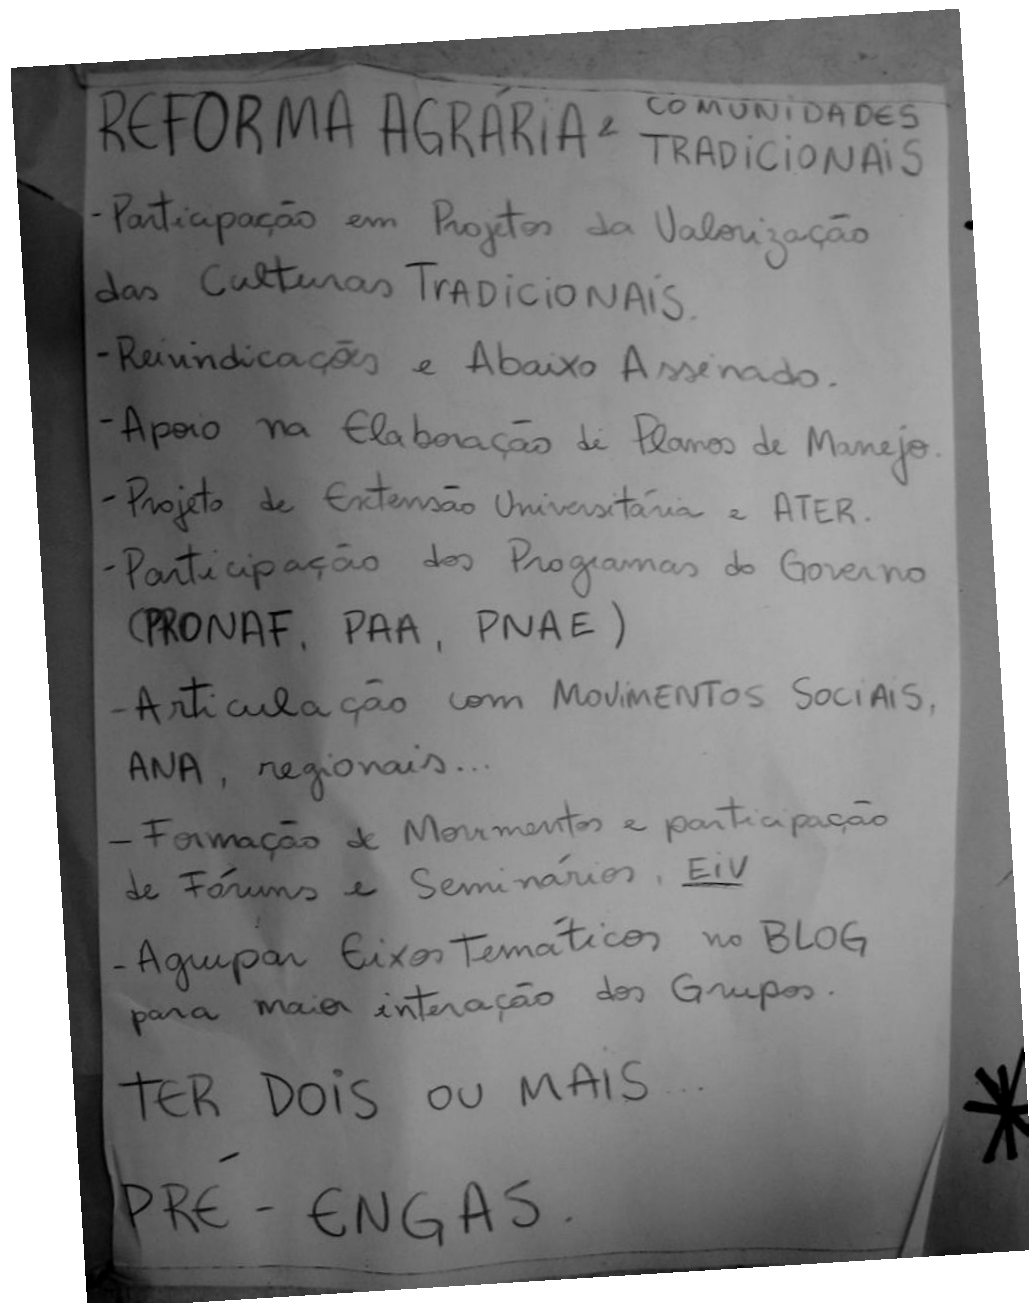 REFORMA AGRÁRIA e COMUNIDADES
TRADICIONAIS
- Participação em Projetos da Valorização
das Culturas TRADICIONAIS.
- Reivindicações e Abaixo Assinado.
- Apoio na Elaboração de Planos de Manejo.
- Projeto de Extensão Universitária e ATER.
- Participação dos Programas do Governo
(PRONAF, PAA, PNAE)
- Articulação com MOVIMENTOS SOCIAIS,
ANA, regionais...
- Formação de Movimentos e participação
de Fóruns e Seminários, EIV
- Agrupar Eixos Temáticos no BLOG
para maior interação dos Grupos.
TER DOIS OU MAIS...
PRÉ - ENGAS.